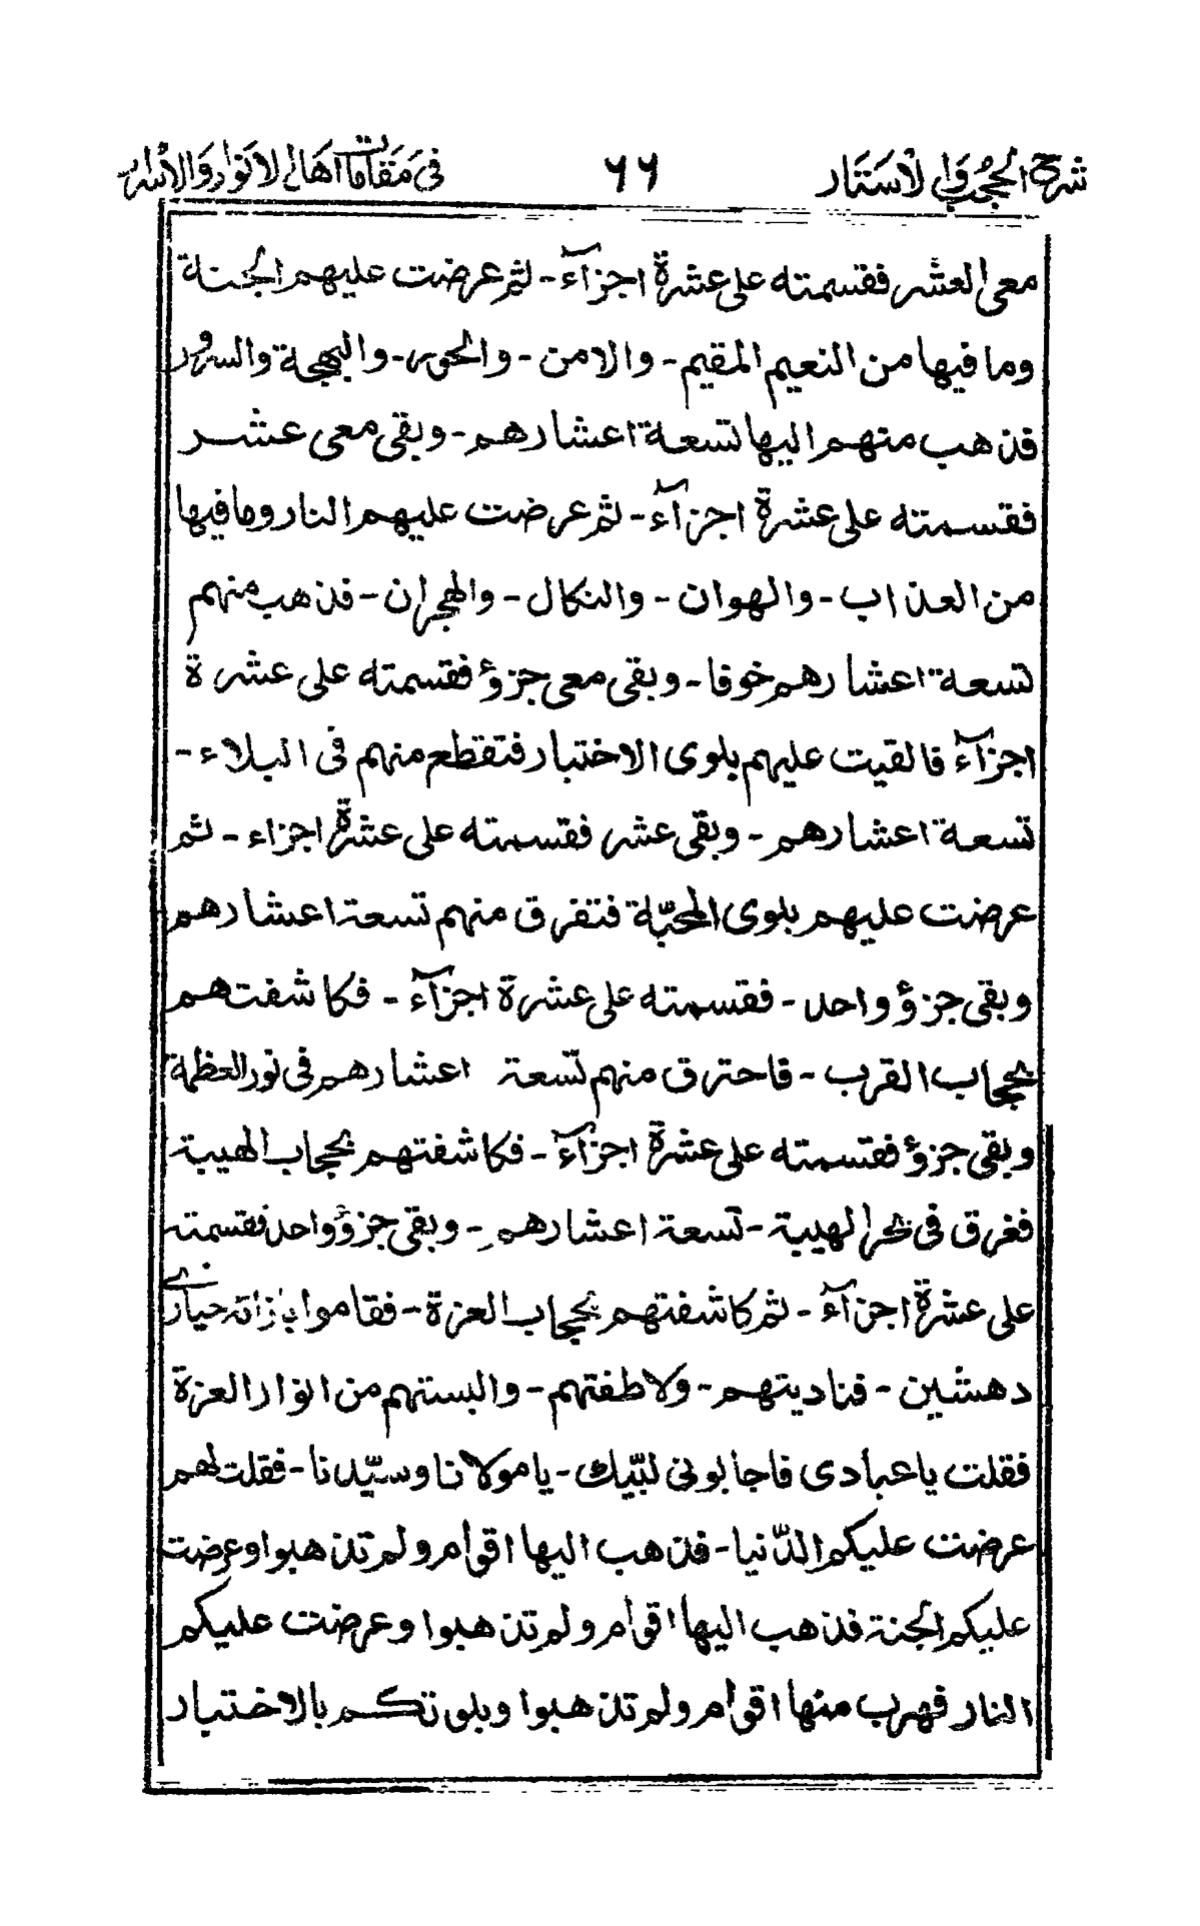 شرح الحجب والاستار ٦٦ فى مقامات اهالى الانوار والاسرار
معى العشر فقسمته على عشرة اجزآء - ثم عرضت عليهم الجنة
وما فيها من النعيم المقيم - والامن - والحور - والبهجة والسرور
فذهب منهم اليها تسعة اعشارهم - وبقى معى عشر
فقسمته على عشرة اجزآء - ثم عرضت عليهم النار وما فيها
من العذاب - والهوان - والنكال - والهجران - فذهب منهم
تسعة اعشارهم خوفا - وبقى معى جزؤ فقسمته على عشرة
اجزآء فالقيت عليهم بلوى الاختبار فتقطع منهم فى البلاء -
تسعة اعشارهم - وبقى عشر فقسمته على عشرة اجزاء - ثم
عرضت عليهم بلوى المحبّة فتفرق منهم تسعة اعشارهم
وبقى جزؤ واحد - فقسمته على عشرة اجزآء - فكاشفتهم
بحجاب القرب - فاحترق منهم تسعة اعشارهم فى نور العظمة
وبقى جزؤ فقسمته على عشرة اجزآء - فكاشفتهم بحجاب الهيبة
فغرق فى بحر الهيبة - تسعة اعشارهم - وبقى جزؤ واحد فقسمته
على عشرة اجزآء - ثم كاشفتهم بحجاب العزة - فقاموا حيارى
دهشين - فناديتهم - ولاطفتهم - والبستهم من انوار العزة
فقلت يا عبادى فاجابونى لبّيك - يا مولانا وسيّدنا - فقلت لهم
عرضت عليكم الدّنيا - فذهب اليها اقوام ولم تذهبوا وعرضت
عليكم الجنة فذهب اليها اقوام ولم تذهبوا وعرضت عليكم
النار فهرب منها اقوام ولم تذهبوا وبلوتكم بالاختبار